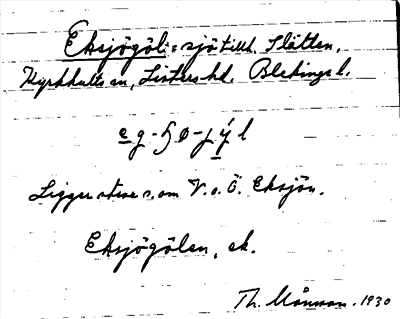 Eksjögöl: sjö tillh. Slätten,
Kyrkhults sn, Listers hd. Blekinge l.
Ligger strax s. om V. o. Ö. Eksjön.
Eksjögölen, ek.
Th. Månsson. 1930